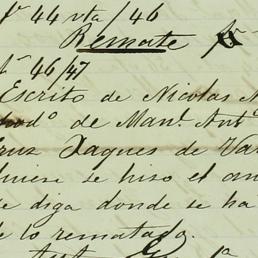 fº 44 vta / 46
Remate
fº 46/47
Escrito de Nicolas
de Man.l Ant.º
Cruz Jaques de
se hiso el
se diga donde se ha
de lo rematado.